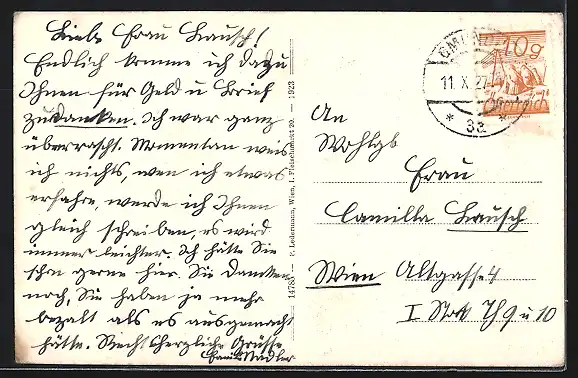 Liebe Frau Lausch!
Endlich komme ich dazu
Ihnen für Geld u Brief
zu danken. Ich war ganz
überrascht. Momentan weis
ich nichts, wen ich etwas
erfahre, werde ich Ihnen
gleich schreiben, es wird
immer leichter. Ich hätte Sie
schon gerne hier. Sie danken
noch, Sie haben ja mehr
bezalt als es ausgemacht
hätte. Recht herzliche Grüsse
Nadler
14785 — P. Ledermann, Wien, I. Fleischmarkt 20. — 1923
GMUN
11. X. 27
* 3a *
10g
Österreich
An
Wohlgb
Frau
Camilla Lausch
Wien Altgasse 4
I Stock Th 9 u 10